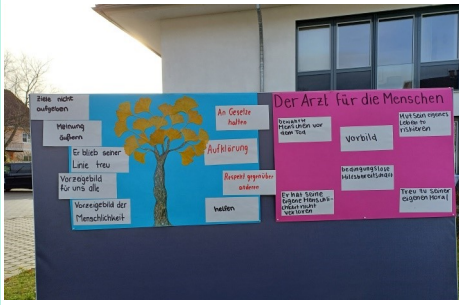 Ziele nicht
aufgeben
Meinung
äußern
Er blieb seiner
Linie treu
Vorzeigebild
für uns alle
Vorzeigebild der
Menschlichkeit
An Gesetze
halten
Aufklärung
Respekt gegenüber
anderen
helfen
Der Arzt für die Menschen
bewahrte
Menschen vor
dem Tod
Vorbild
Mut sein eigenes
Leben zu
riskieren
bedingungslose
Hilfsbereitschaft
Er hat seine
eigene Menschli-
chkeit nicht
verloren
Treu zu seiner
eigenen Moral